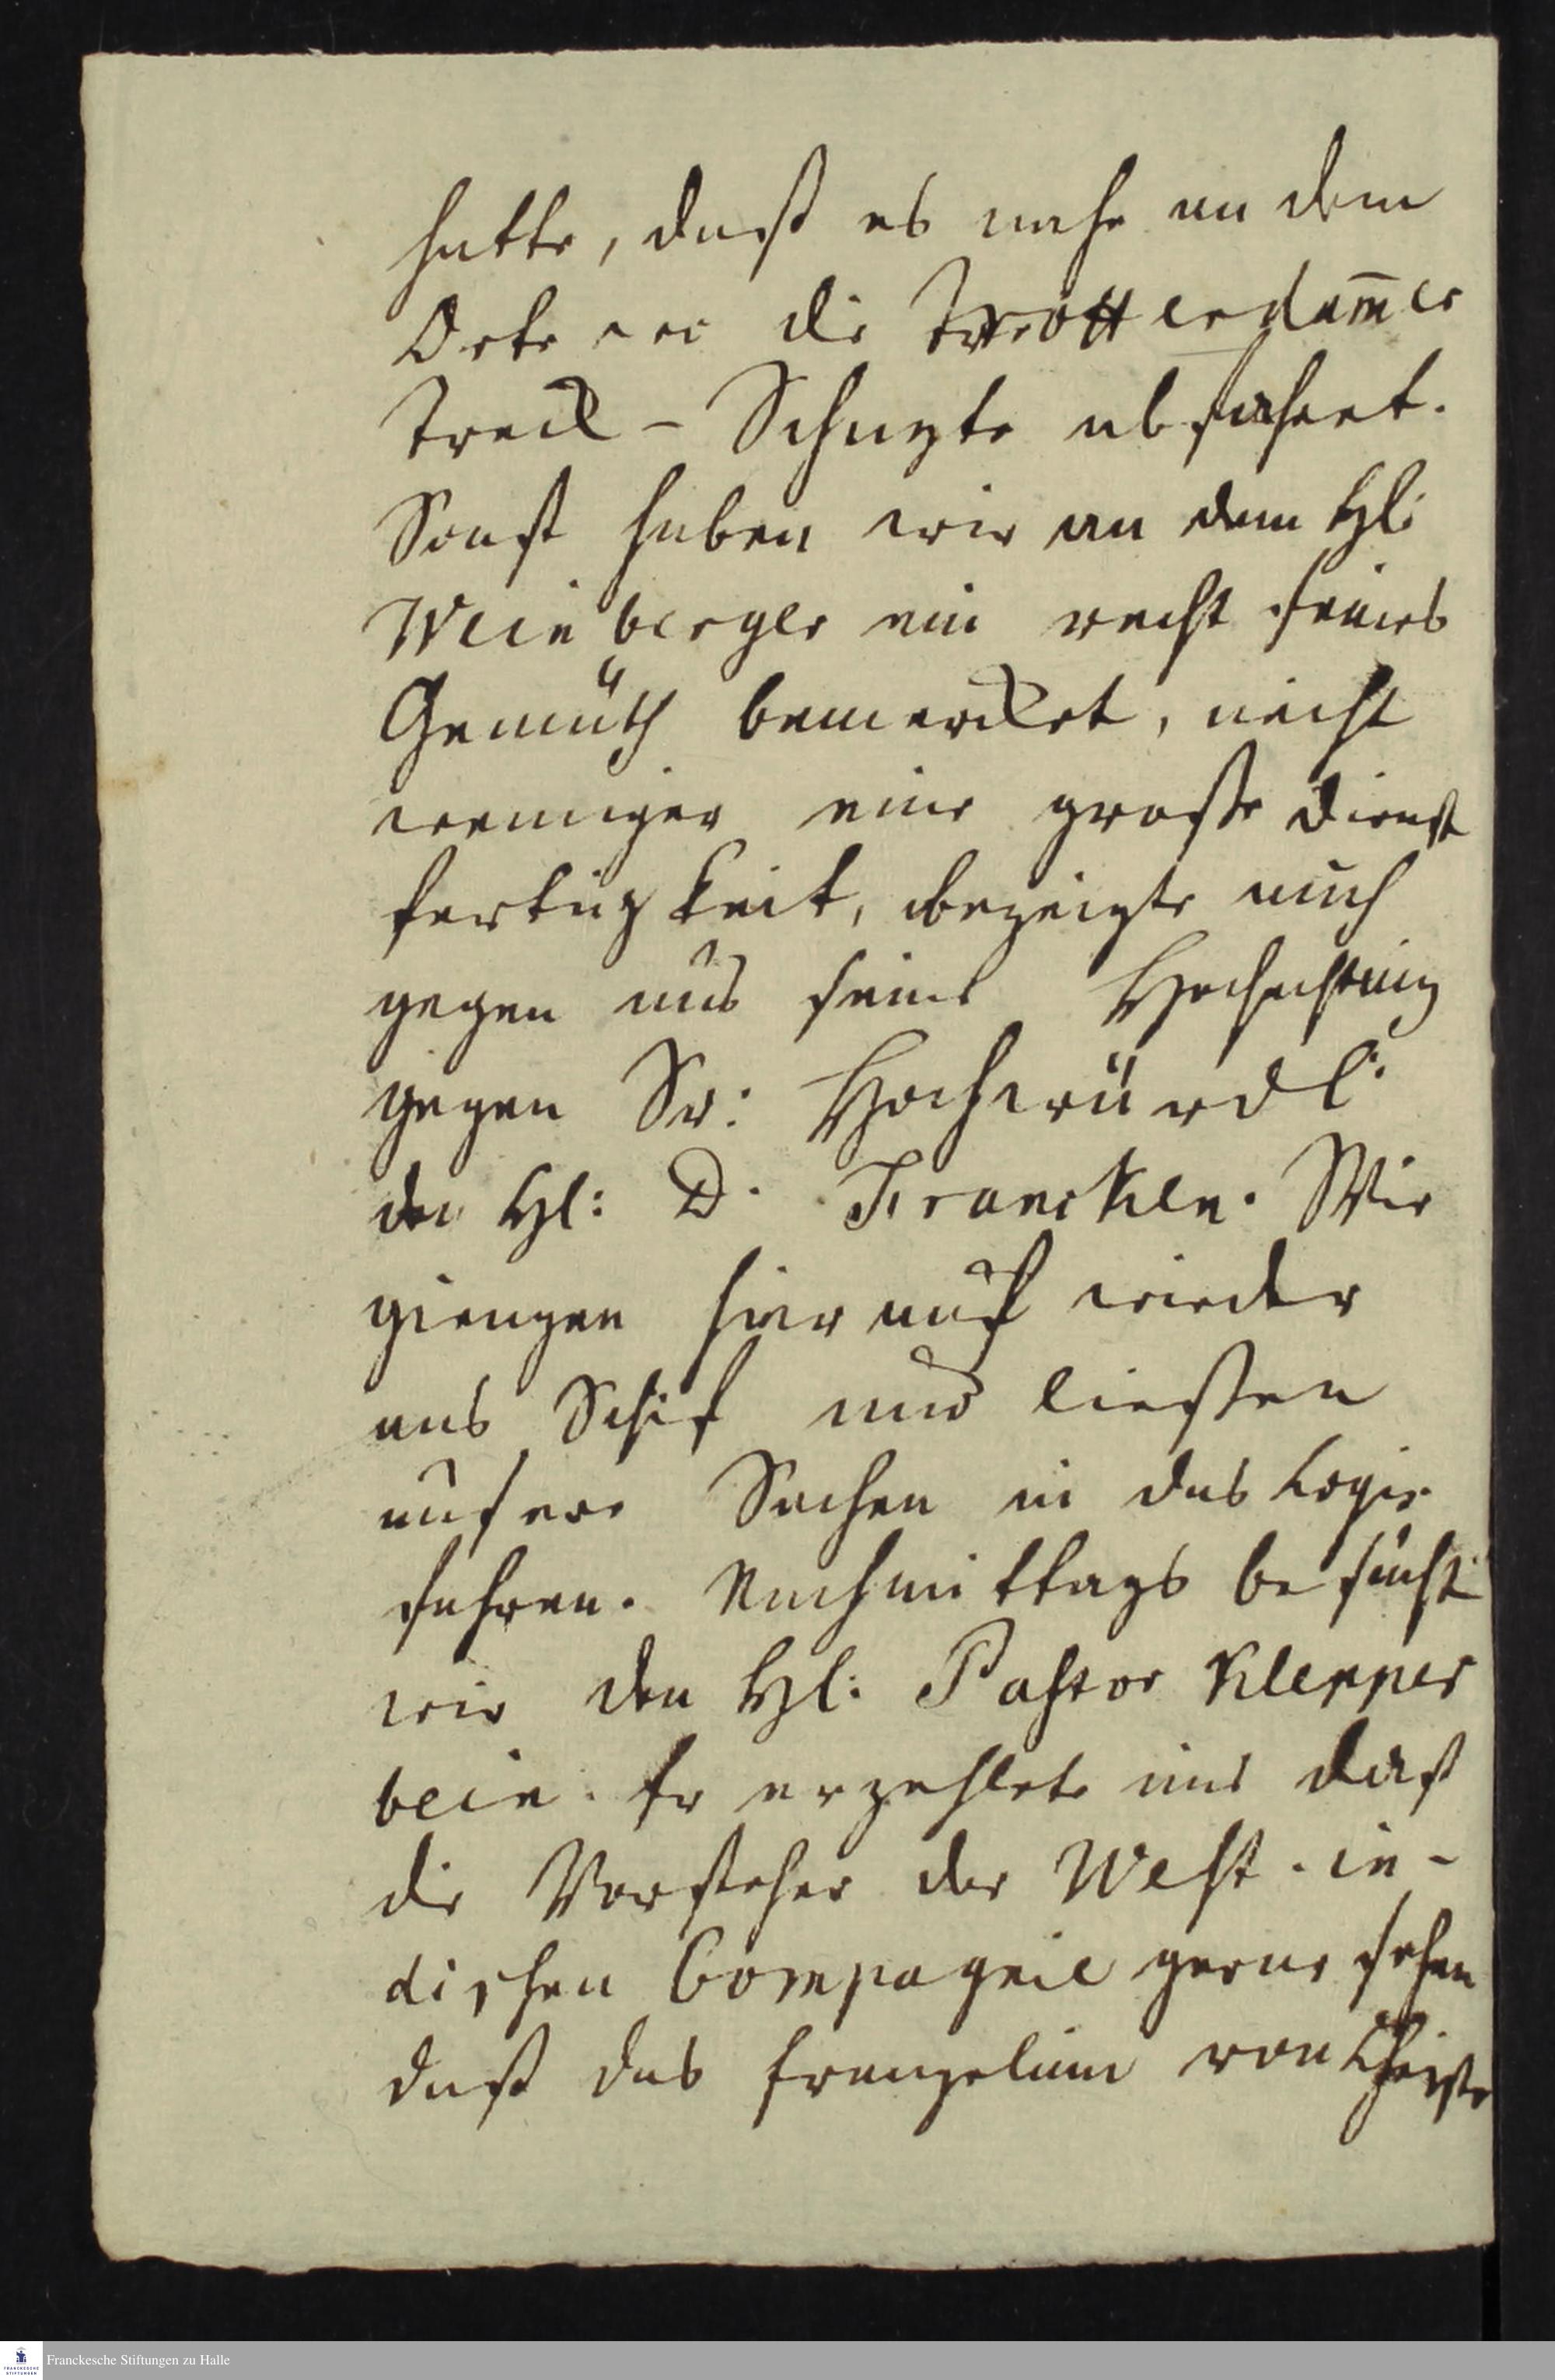 hatte, daß es nahe an dem
Orte wo die Rotterdam̄er
Treck-Schuyte abfähret.
Sonst haben wir an dem Hl:
Weinberger ein recht feines
Gemüth bemercket, nicht
weniger eine große Dienst
fertigkeit, bezeigte auch
gegen uns seine Hochachtung
gegen Sr: Hochwürdl:
den Hl: D. Francken. Wir
giengen hierauf wieder
ans Schif und ließen
unsere Sachen in das Logis
fahren. Nachmittags besucht
wir den Hl: Pastor Klepper
bein. Er erzehlete uns daß
die Vorsteher der West-in-
dischen Compagnie gerne sehen
daß das Evangelium von Christo
Franckesche Stiftungen zu Halle